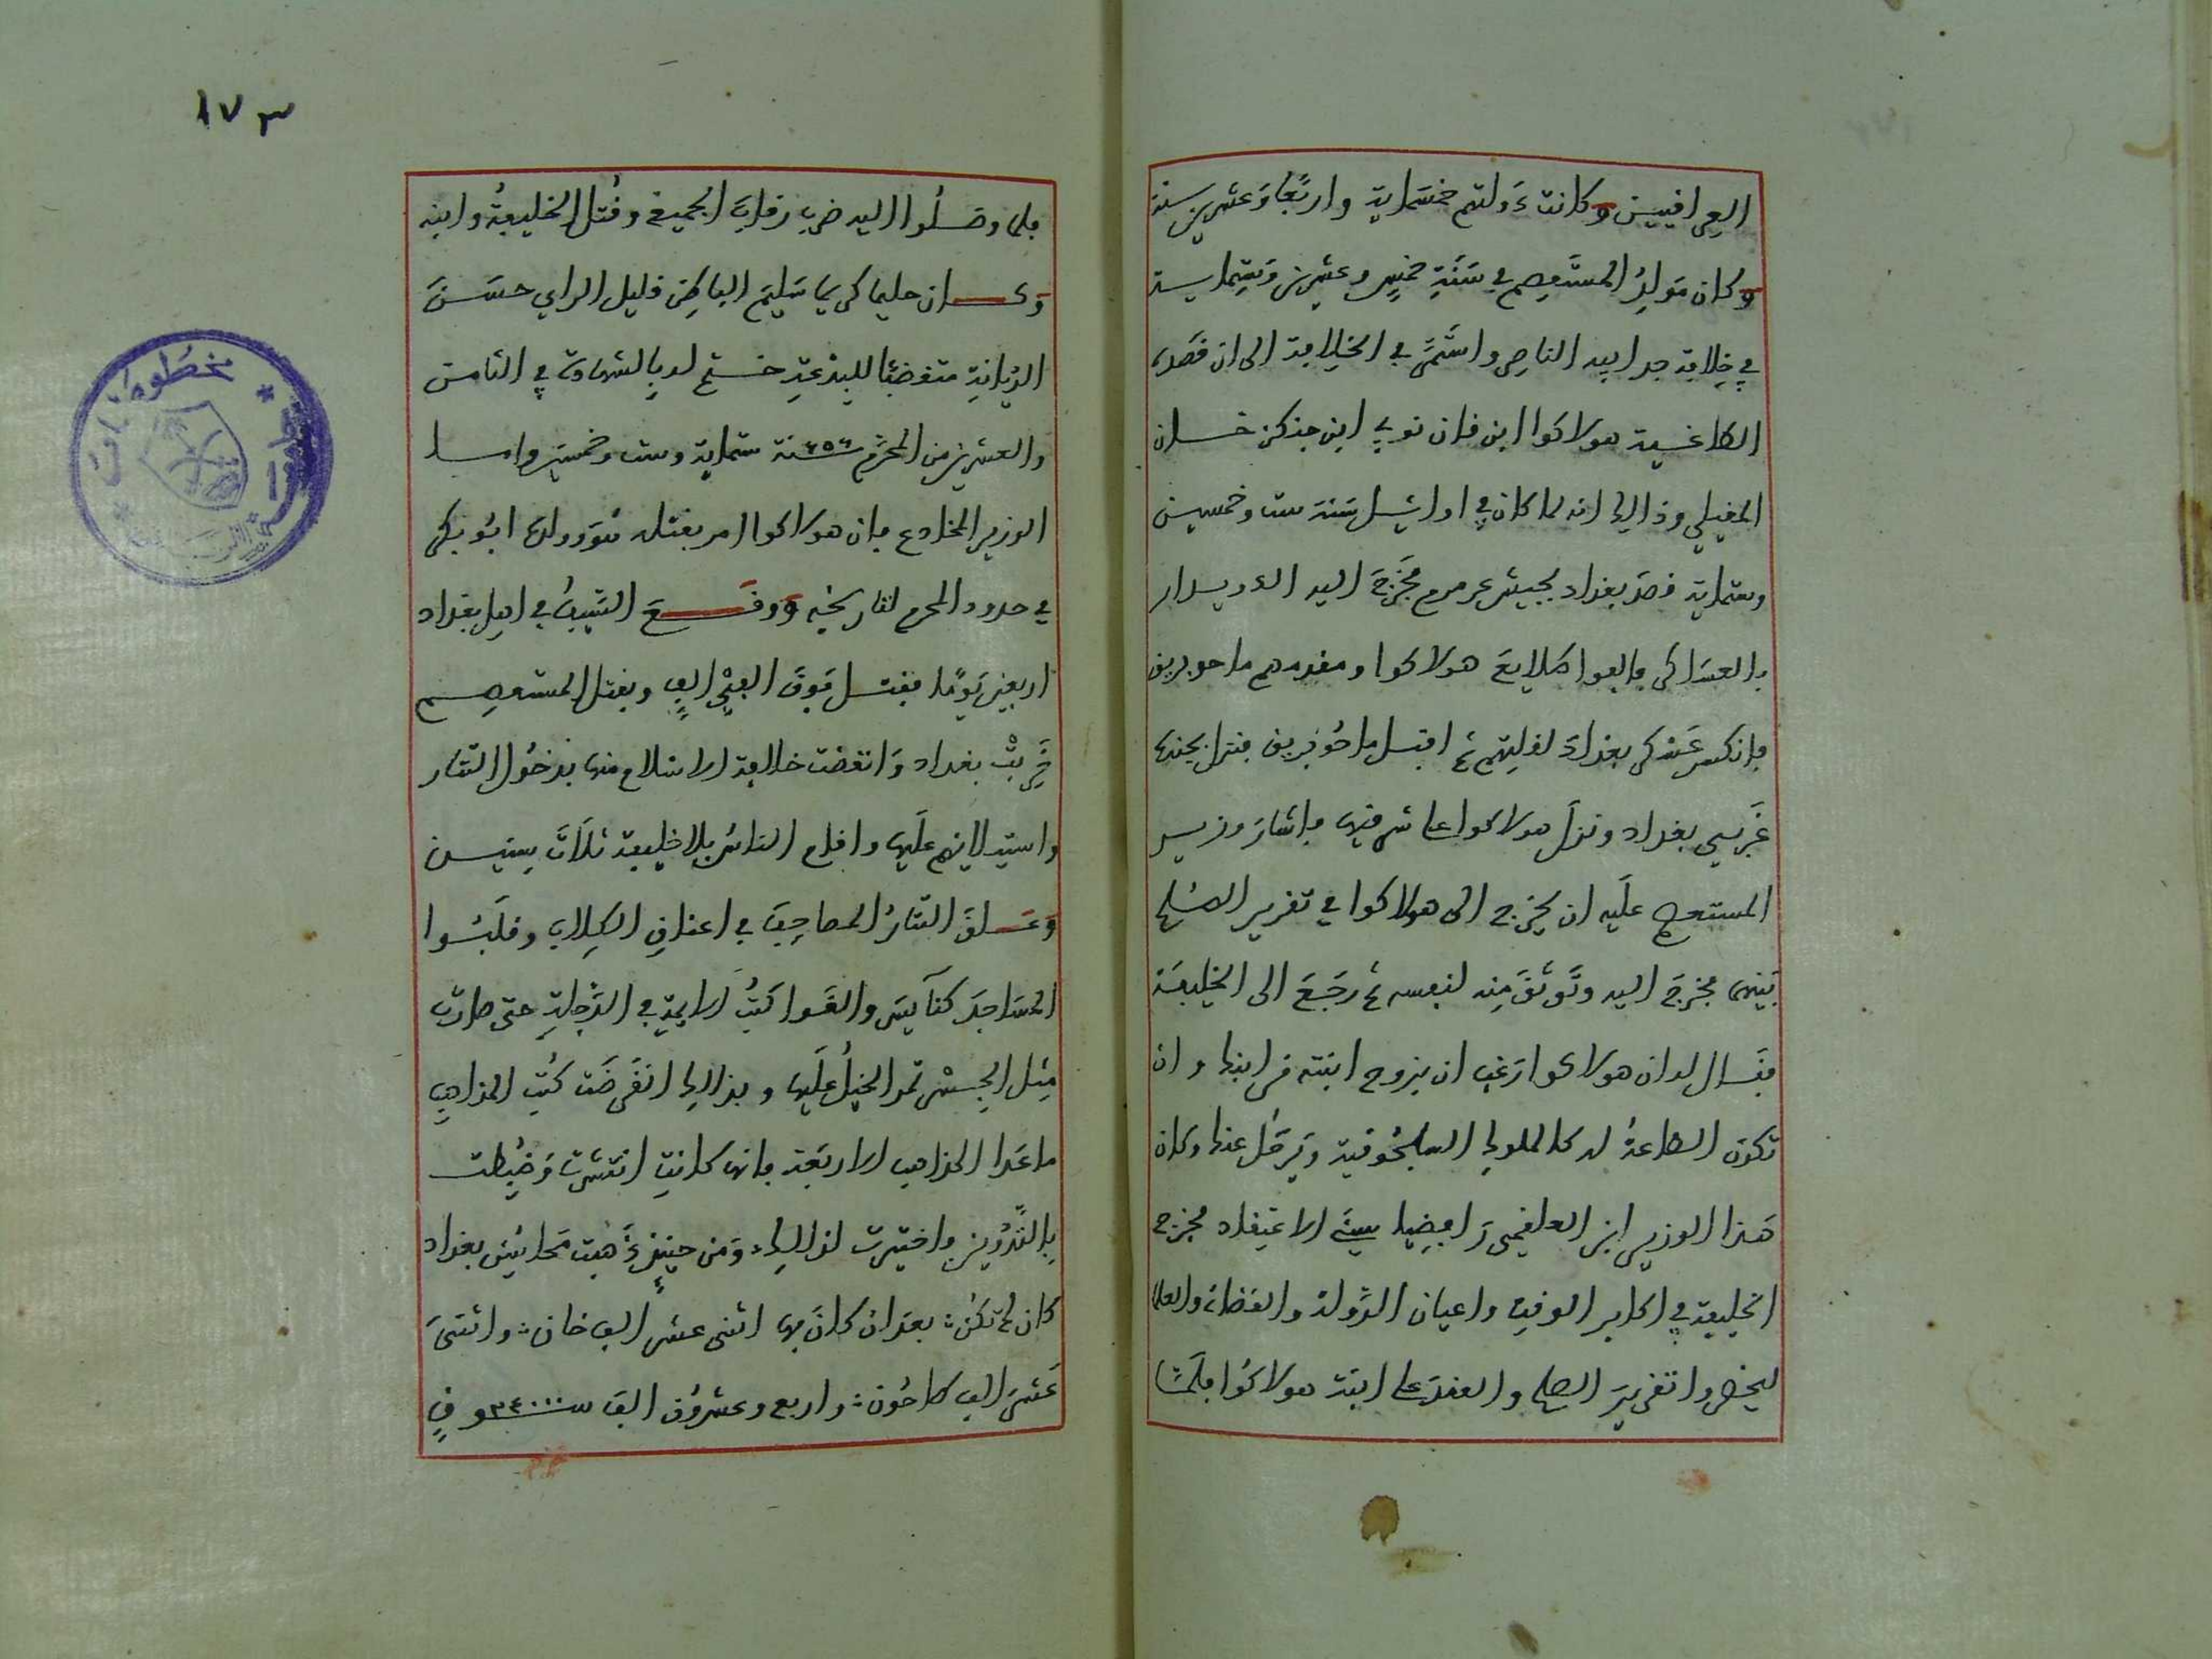 العراقيين وكانت دولتهم خمسماية واربعا وعشرين سنة
وكان مولد المستعصم في سنة خمس وعشرين وستماية
في خلافة جد ابيه الناصر واستمر في الخلافة الى ان قصده
الطاغية هولاكوا ابن قان تولي ابن جنكز خان
المغيلي وذالك انه لما كان في اوايل سنة ست وخمسين
وستماية قصد بغداد بجيش عرمرم فخرج اليه الدويدار
بالعساكر فالفوا طلايع هولاكوا ومقدمهم ماحوبريق
فانكسر عسكر بغداد لقلتهم ثم اقبل ماحوبريق فنزل بجنده
غربي بغداد ونزل هولاكوا على شرقيها فاشار وزير
المستعصم عليه ان يخرج الى هولاكوا في تقرير الصلح
بينهما فخرج اليه وتوثق منه لنفسه ثم رجع الى الخليفة
فقال له ان هولاكوا رغب ان يزوج ابنته من ابنك وان
تكون الطاعة له كالملوك السلجوقية ويرحل عنك وكان
هذا الوزير ابن العلقمي رافضيا سيئ الاعتقاد فخرج
الخليفة في اكابر الوقت واعيان الدولة والقضاة والعلما
ليحضروا تقرير الصلح والعقد على ابنة هولاكوا فلما
١٧٣
فلما وصلوا اليه ضرب رقاب الجميع وقتل الخليفة وابنه
وكان حليما كريما سليم الباطن قليل الراي حسن
الديانة متغضبا للبدعة ختم له بالشهادة في الثامن
والعشرين من المحرم سنة ٦٥٦ ستماية وست وخمسين واما
الوزير المخادع فان هولاكوا امر بقتله هو وولده ابو بكر
في حدود المحرم لتاريخه ووقع السيف في اهل بغداد
اربعين يوما فقتل فوق الفي الف وبقتل المستعصم
خربت بغداد وانقضت خلافة الاسلام منها بدخول التتار
واستيلايهم عليها واقام الناس بلا خليفة ثلاث سنين
وعلق التتار المصاحف في اعناق الكلاب وقلبوا
المساجد كنآيس والقوا كتب الايمة في الدجلة حتى صارت
مثل الجسر تمر الخيل عليها وبذالك انقرضت كتب المذاهب
ماعدا المذاهب الاربعة فانها كانت انتشرت وضبطت
بالتدوين واختيرت لذالك ومن حينئذ ذهبت محاسن بغداد
كان لم تكن بعد ان كان بها اثنى عشر الف خان واثنى
عشر الف طاحون واربع وعشرون الف